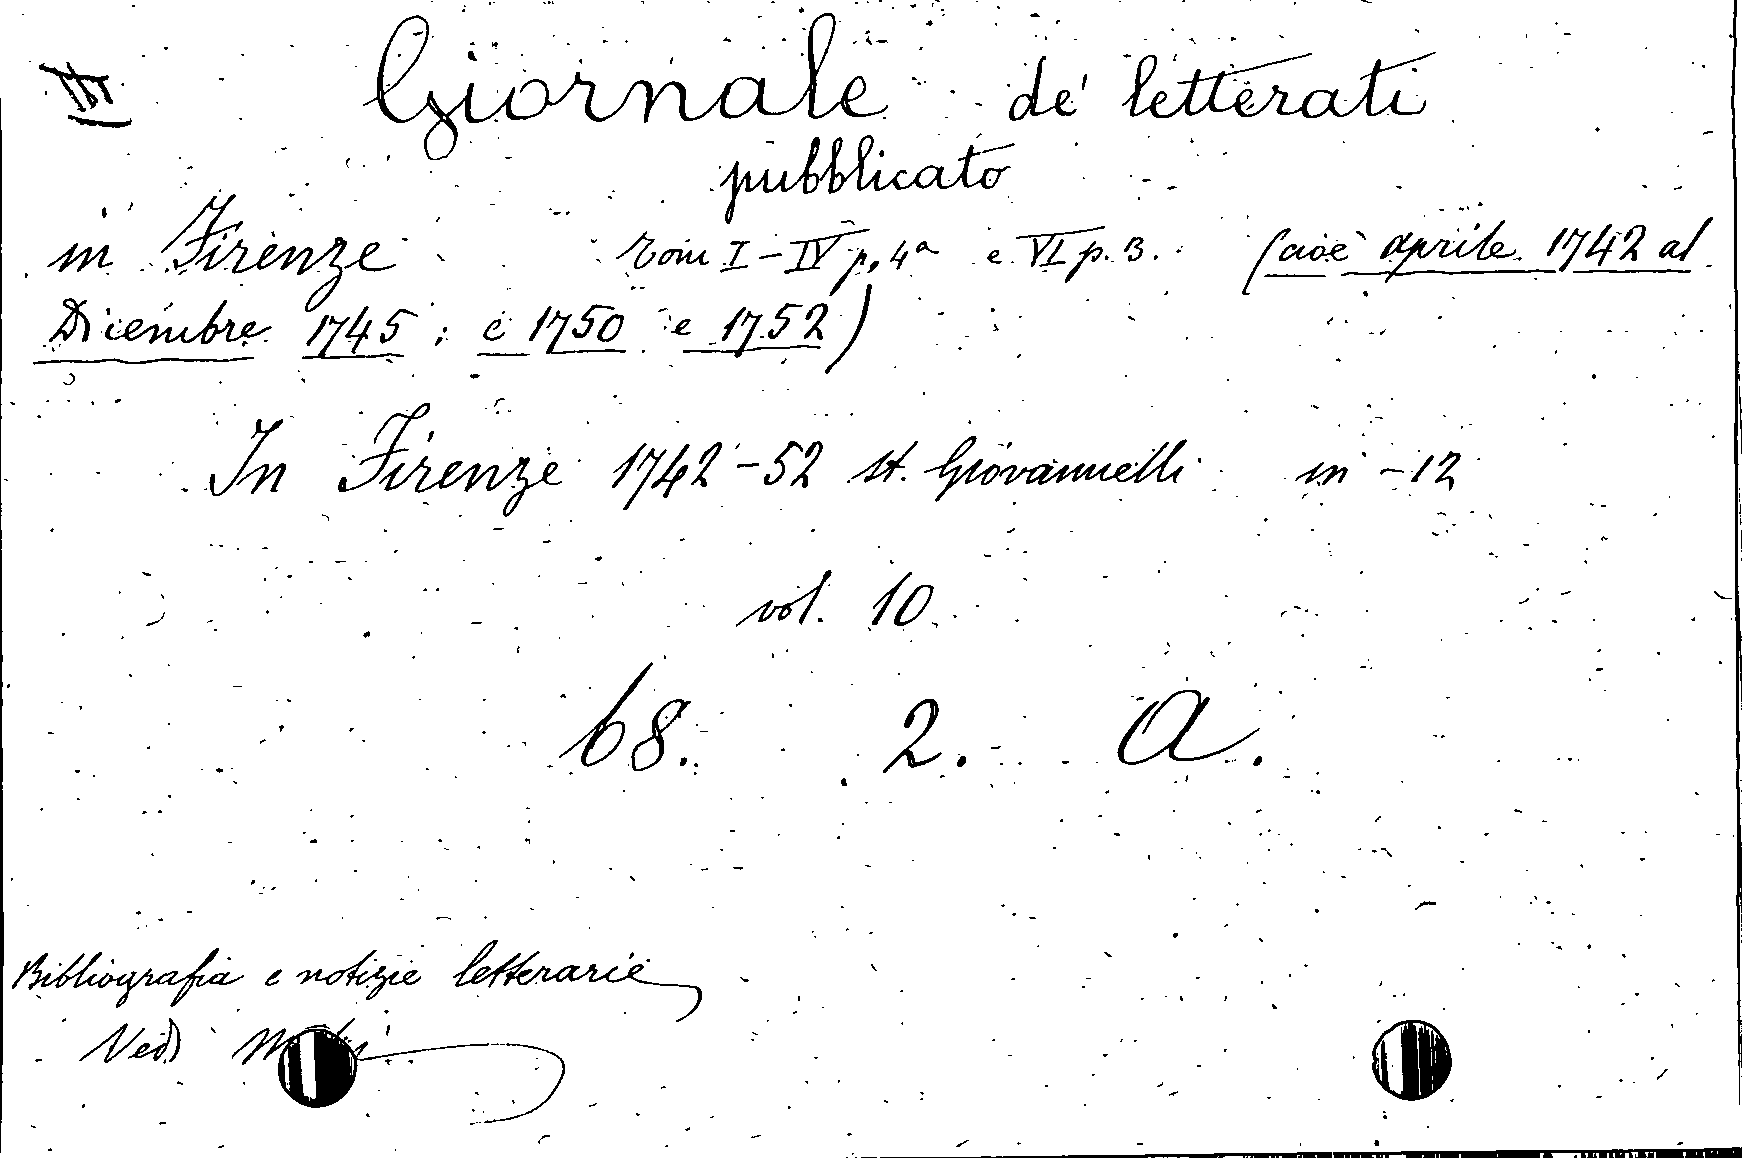 Giornale de' letterati
pubblicato
in Firenze Tomi I - IV p. 4ª e VI p. 3. (cioè aprile 1742 al
Dicembre 1745 ; e 1750 e 1752)
In Firenze 1742 - 52 st. Giovannelli in - 12
vol. 10.
68. 2. A.
Bibliografia e notizie letterarie
Vedi